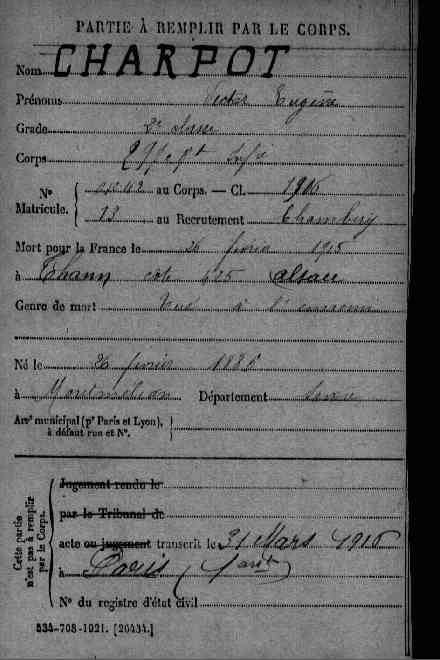 PARTIE À REMPLIR PAR LE CORPS.
Nom CHARPOT
Prénoms Victor Eugène
Grade 2e classe
Corps
Nº
Matricule.
au Corps. — Cl. 1916
13 au Recrutement Chambéry
Mort pour la France le 26 février 1915
à Thann cote 425 Alsace
Genre de mort Tué à l'ennemi
Né le 26 février
à Montmélian Département Savoie
Arrt municipal (pr Paris et Lyon),
à défaut rue et Nº.
Cette partie
n'est pas à remplir
par le Corps.
Jugement rendu le
par le Tribunal de
acte ou jugement transcrit le 31 Mars 1916
à Paris
Nº du registre d'état civil
534-708-1921. [26434.]